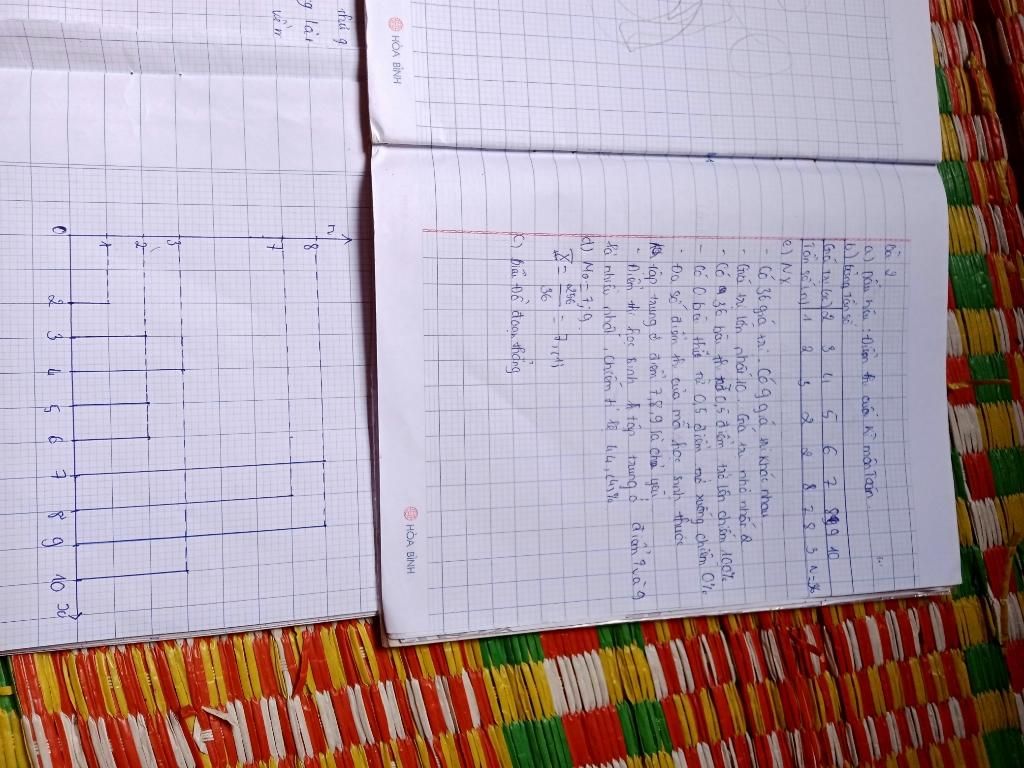 HÒA BÌNH
HÒA BÌNH
Bài 9
a) Dấu hiệu: Điểm thi cuối kì môn Toán.
b) bảng tần số
Giá trị (x) 2 3 4 5 6 7 8 9 10
Tần số (n) 1 2 3 2 2 8 7 8 3 N=36
c) NX
- Có 36 giá trị. Có 9 giá trị khác nhau
- Giá trị lớn nhất 10. Giá trị nhỏ nhất 2
- Có 36 bài thi từ 0,5 điểm trở lên chiếm 100%
- Có 0 bài thi từ 0,5 điểm trở xuống chiếm 0%
- Đa số điểm thi của mỗi học sinh thuộc
tập trung ở điểm 7,8,9 là chủ yếu
- Điểm thi học sinh tập trung ở điểm 7 và 9
là nhiều nhất, chiếm tỉ lệ 44,(4)%
d) M₀ = 7; 9
X̄ = 256/36 = 7,(1)
c) Biểu đồ đoạn thẳng
n
8
7
3
2
1
0 2 3 4 5 6 7 8 9 10 x